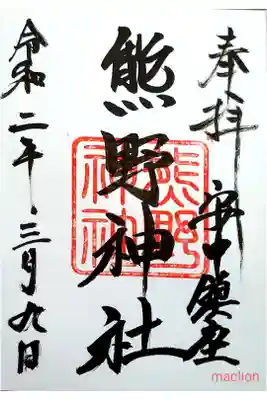 奉拝 安中鎮座
熊野神社
熊野
神社
令和二年三月九日
maclion